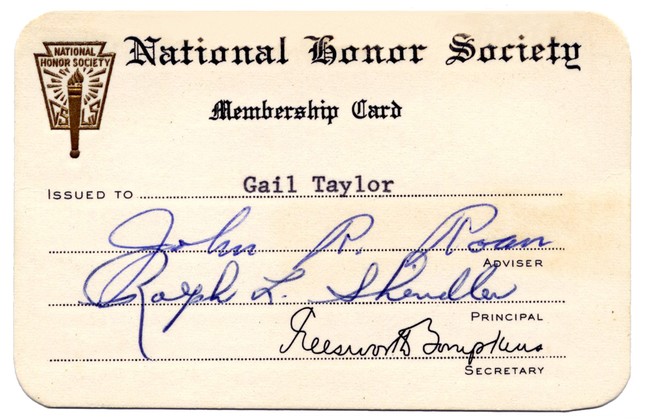 NATIONAL
HONOR SOCIETY
National Honor Society
Membership Card
ISSUED TO Gail Taylor
John P. Roan
ADVISER
Ralph L.
PRINCIPAL
Tompkins
SECRETARY